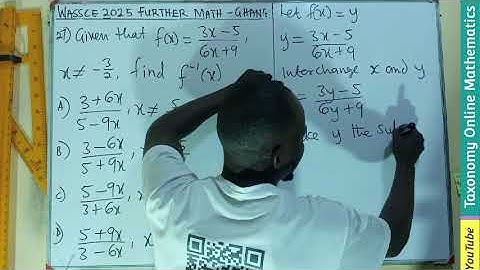 WASSCE 2025 FURTHER MATH - GHANA
27) Given that f(x) = (3x - 5)/(6x + 9),
x ≠ -3/2, find f⁻¹(x)
A) (3 + 6x)/(5 - 9x), x ≠ 5
B) (3 - 6x)/(5 + 9x),
C) (5 - 9x)/(3 + 6x), x
D) (5 + 9x)/(3 - 6x), x
Let f(x) = y
y = (3x - 5)/(6x + 9)
Interchange x and y
= (3y - 5)/(6y + 9)
y the
Taxonomy Online Mathematics
YouTube